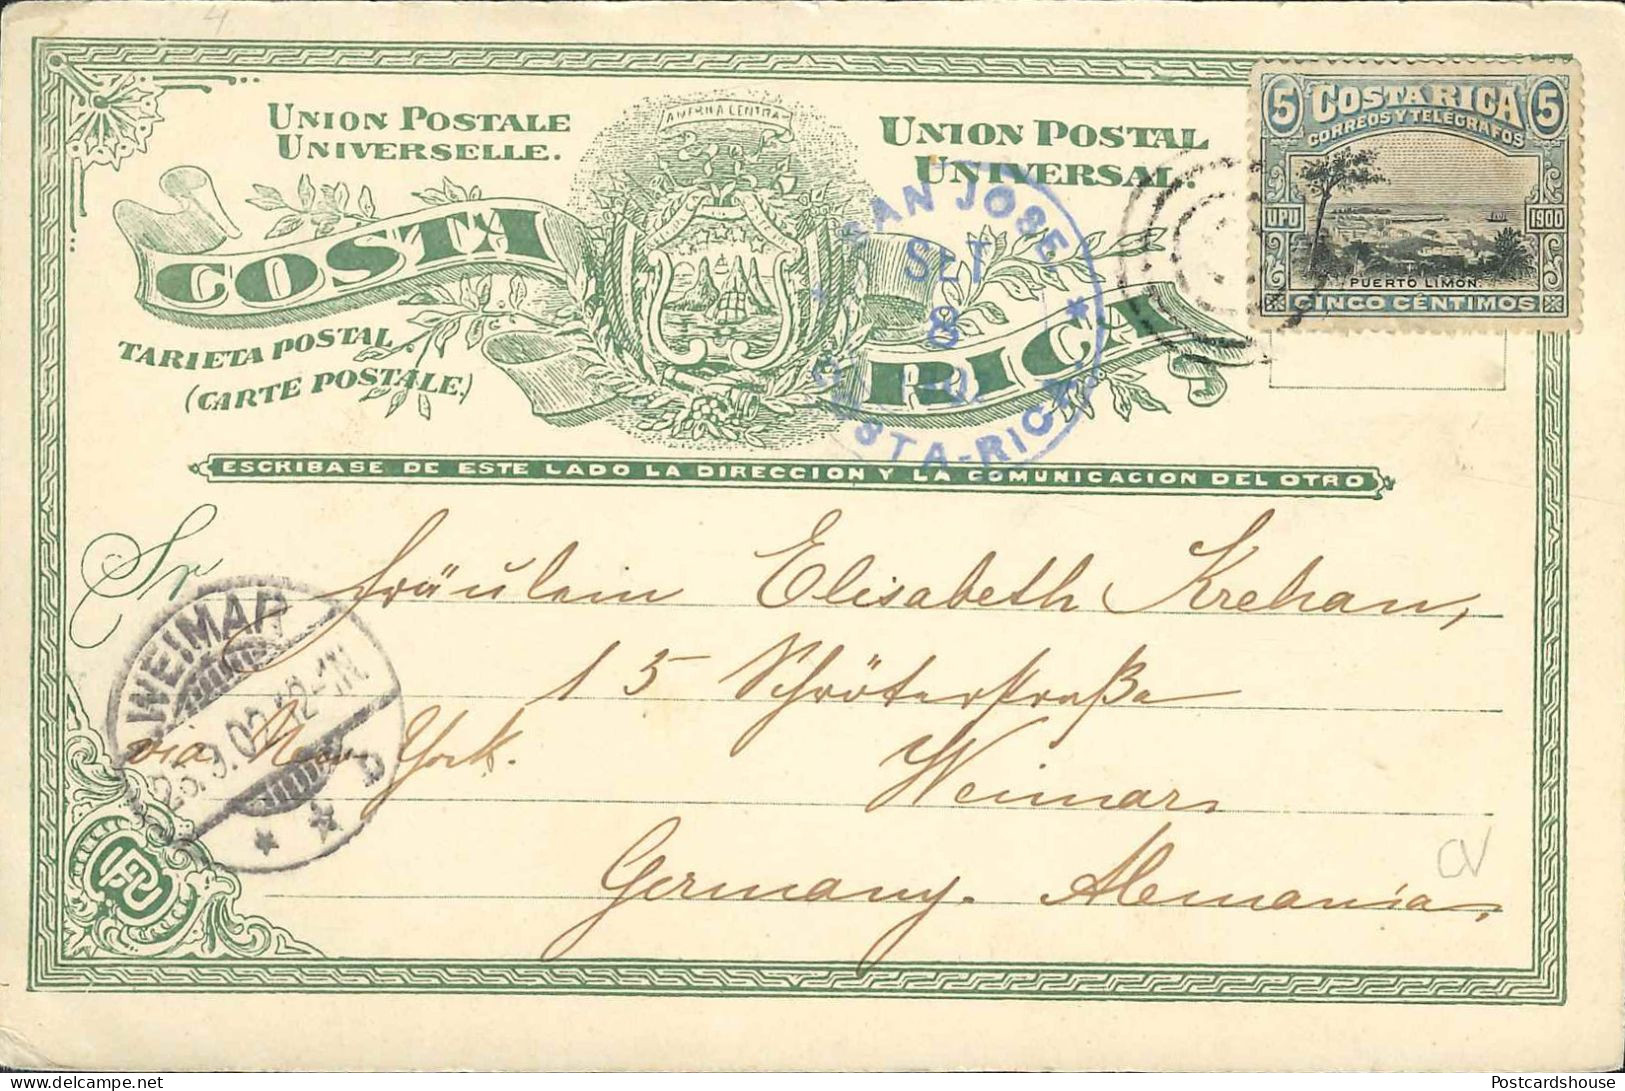 UNION POSTALE
UNIVERSELLE.
AMERICA CENTRAL
UNION POSTAL
UNIVERSAL.
COSTA RICA
TARJETA POSTAL.
(CARTE POSTALE.)
5 COSTA RICA 5
CORREOS Y TELÉGRAFOS
UPU 1900
PUERTO LIMON.
CINCO CÉNTIMOS
SAN JOSE
SET
8
COSTA-RICA
ESCRIBASE DE ESTE LADO LA DIRECCION Y LA COMUNICACION DEL OTRO
Sr
Fräulein Elisabeth Krehan,
15 Schröterstraße
via New York.
Weimar
Germany. Alemania.
WEIMAR
25.9.02.12-1N
b
UPU
CV
Postcardshouse